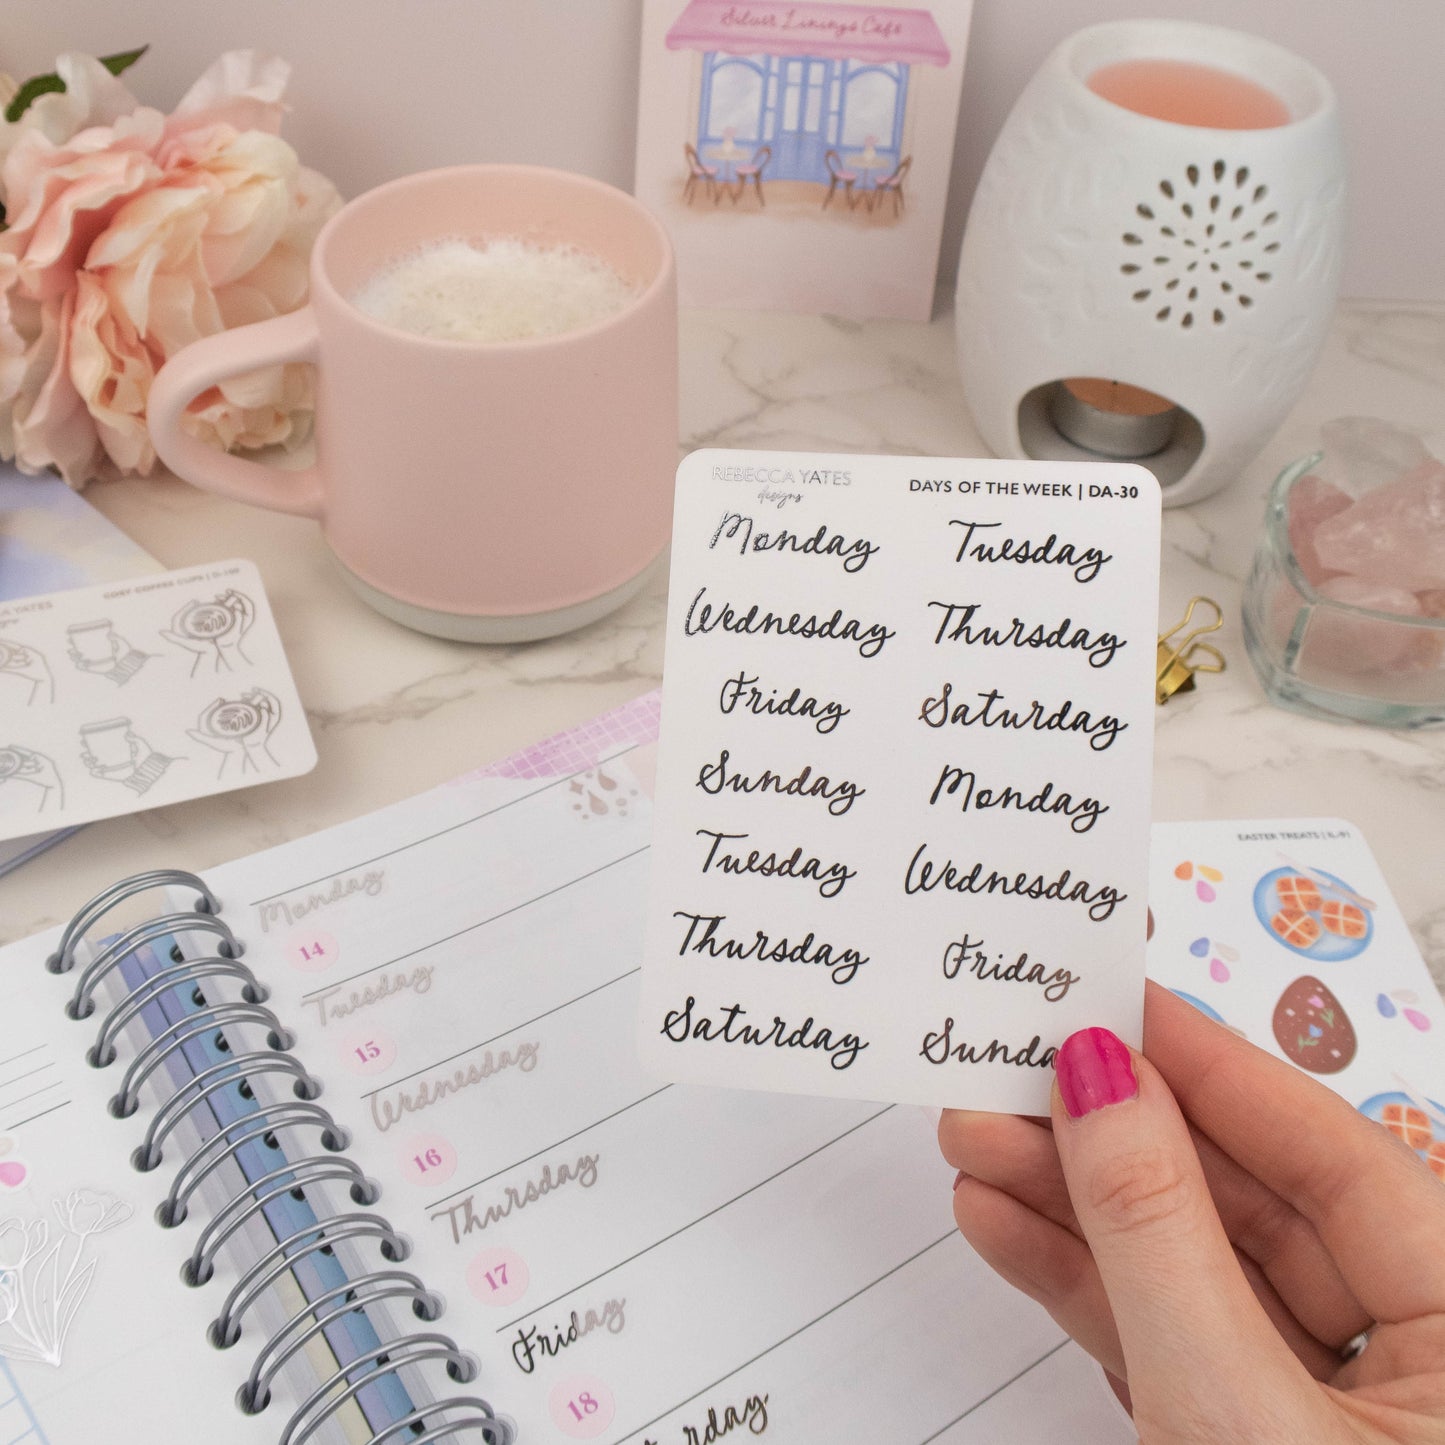 Silver Linings Cafe
REBECCA YATES
designs
DAYS OF THE WEEK | DA-30
Monday Tuesday
Wednesday Thursday
Friday Saturday
Sunday Monday
Tuesday Wednesday
Thursday Friday
Saturday Sunda
YATES
COSY COFFEE CUPS |
EASTER TREATS | IL-91
Monday
14
Tuesday
15
Wednesday
16
Thursday
17
Friday
18